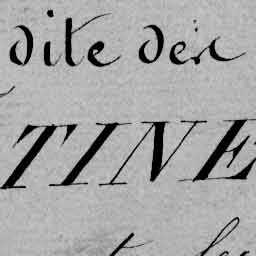 dite den
TINE